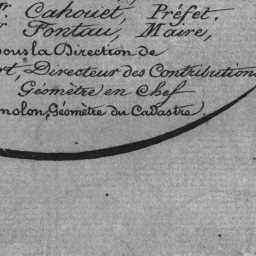 r. Cahouet, Préfet.
r Fontau, Maire,
sous la Direction de
rt, Directeur des Contribution
Géomètre en Chef
nolon, Géomètre du Cadastre.